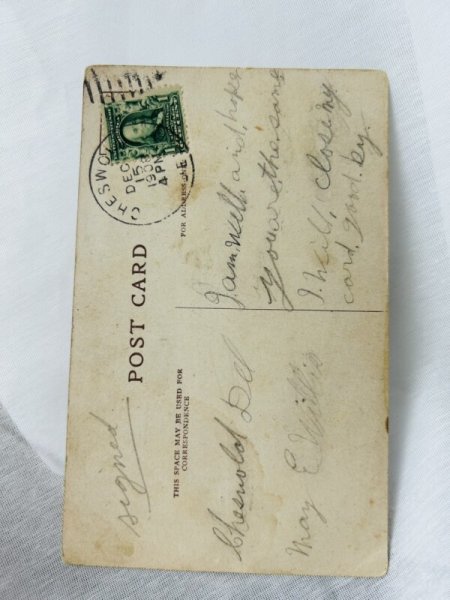 signed
POST CARD
THIS SPACE MAY BE USED FOR
CORRESPONDENCE
FOR ADDRESS ONLY
CHESWO
DEC
15
1908
4 PM
Cheswold Del
May E
I am well and hope
you are the same
I will closing
card good by.